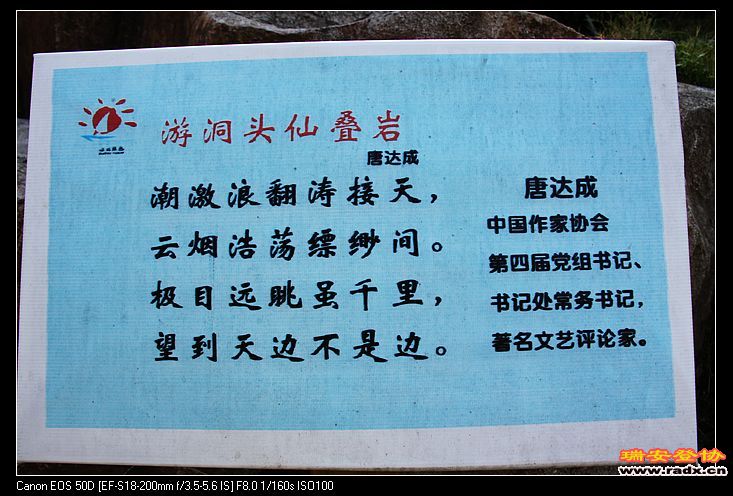 游洞头仙叠岩
唐达成
潮激浪翻涛接天，
云烟浩荡缥缈间。
极目远眺虽千里，
望到天边不是边。
唐达成
中国作家协会
第四届党组书记、
书记处常务书记，
著名文艺评论家。
瑞安登协
www.radx.cn
Canon EOS 50D [EF-S18-200mm f/3.5-5.6 IS] F8.0 1/160s ISO100